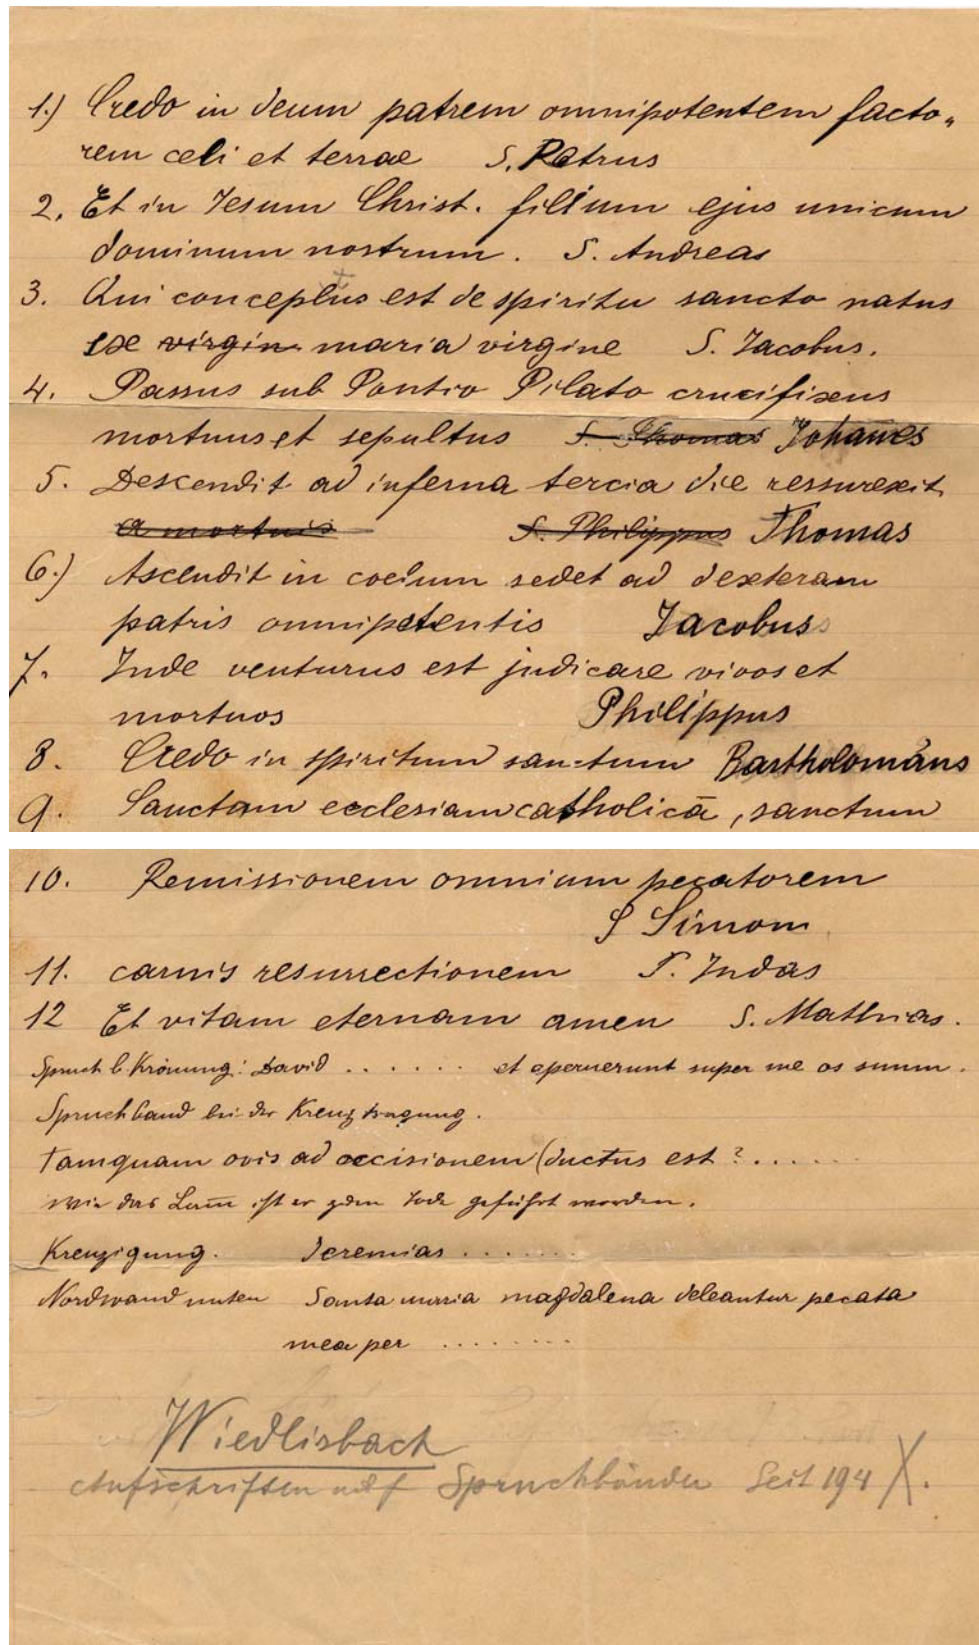 1.) Credo in deum patrem omnipotentem facto„
rem celi et terrae S. Petrus
2. Et in Jesum Christ. filium ejus unicum
dominum nostrum. S. Andreas
3. Qui conceptus est de spiritu sancto natus
exe virgin maria virgine S. Jacobus.
4. Passus sub Pontio Pilato crucifixus
mortuus et sepultus S. Thomas Johannes
5. Descendit ad inferna tercia die ressurexit
a mortuis S. Philippus Thomas
6.) Ascendit in coelum sedet ad dexteram
patris omnipotentis Jacobus
7. Inde venturus est judicare vivos et
mortuos Philippus
8. Credo in spiritum sanctum Bartholomäus
9. Sanctam ecclesiam catholicā, sanctum
10. Remissionem omnium pecatorem
S Simon
11. carnis resurrectionem S. Judas
12 Et vitam eternam amen S. Mathias.
Spruch b. Krönung: David ...... et aperuerunt super me os suum.
Spruchband bei der Kreuztragung.
Tamquam ovis ad occisionem (ductus est ?......
wie das Lam̄ ist er zum Tode geführt worden.
Kreuzigung. Jeremias .......
Nordwand unten Santa maria magdalena deleantur pecata
mea per ........
Wiedlisbach
Aufschriften auf Spruchbänder Seit 194